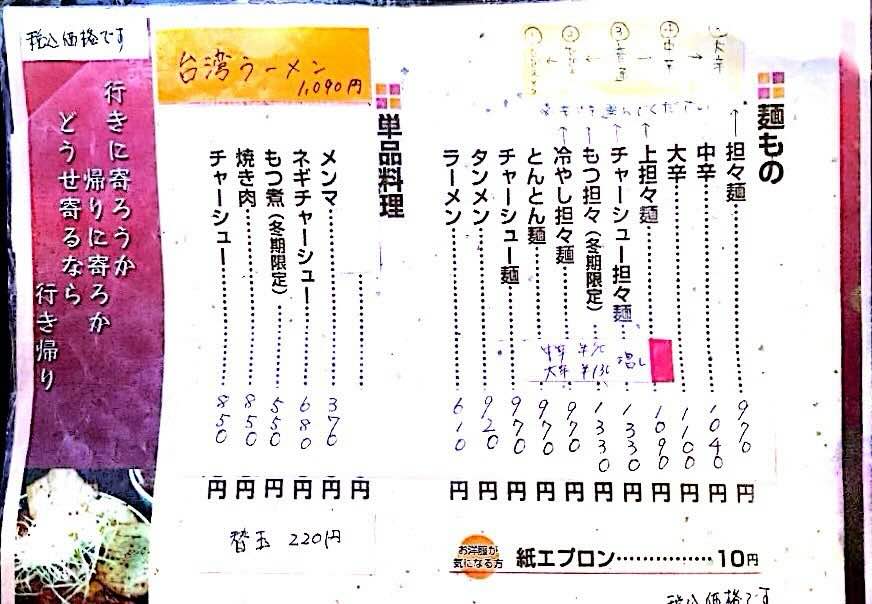 税込価格です
行きに寄ろうか
帰りに寄ろか
どうせ寄るなら
行き帰り
台湾ラーメン
1,090円
麺もの
担々麺 970円
中辛 1040円
大辛 1100円
上担々麺 1090円
チャーシュー担々麺 1330円
もつ担々(冬期限定) 1330円
冷やし担々麺 970円
とんとん麺 970円
チャーシュー麺 970円
タンメン 920円
ラーメン 610円
大辛
中辛
③普通
増し
中辛 ¥70
大辛 ¥130
単品料理
円
メンマ 370円
ネギチャーシュー 680円
もつ煮(冬期限定) 550円
焼き肉 850円
チャーシュー 850円
替玉 220円
お洋服が
気になる方
紙エプロン 10円
税込価格です